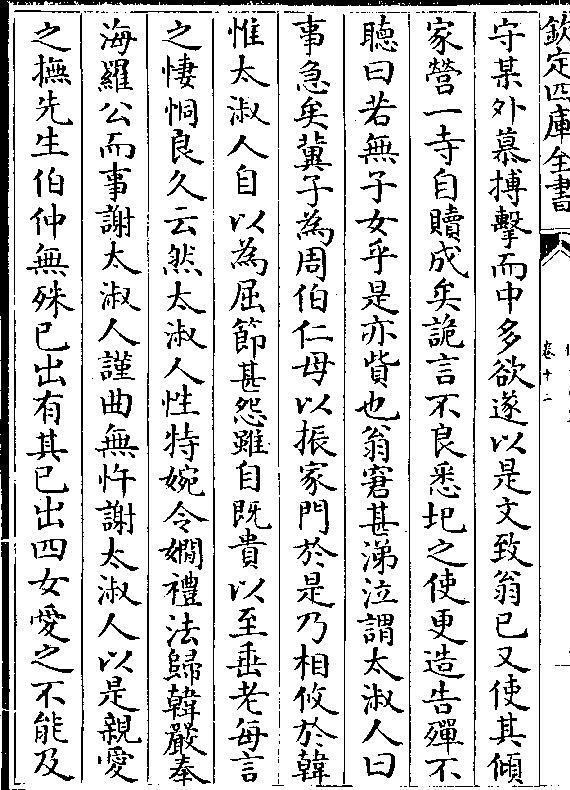 欽定四庫全書
卷十二
守某外慕搏擊而中多欲遂以是文致翁已又使其傾
家營一寺自贖成矣詭言不良悉圯之使更造告殫不
聽曰若無子女乎是亦貲也翁窘甚涕泣謂太淑人曰
事急矣冀子為周伯仁母以振家門於是乃相攸於韓
惟太淑人自以為屈節甚怨雖自既貴以至垂老每言
之悽恫良久云然太淑人性特婉令嫺禮法歸韓嚴奉
海羅公而事謝太淑人謹曲無忤謝太淑人以是親愛
之撫先生伯仲無殊已出有其已出四女愛之不能及